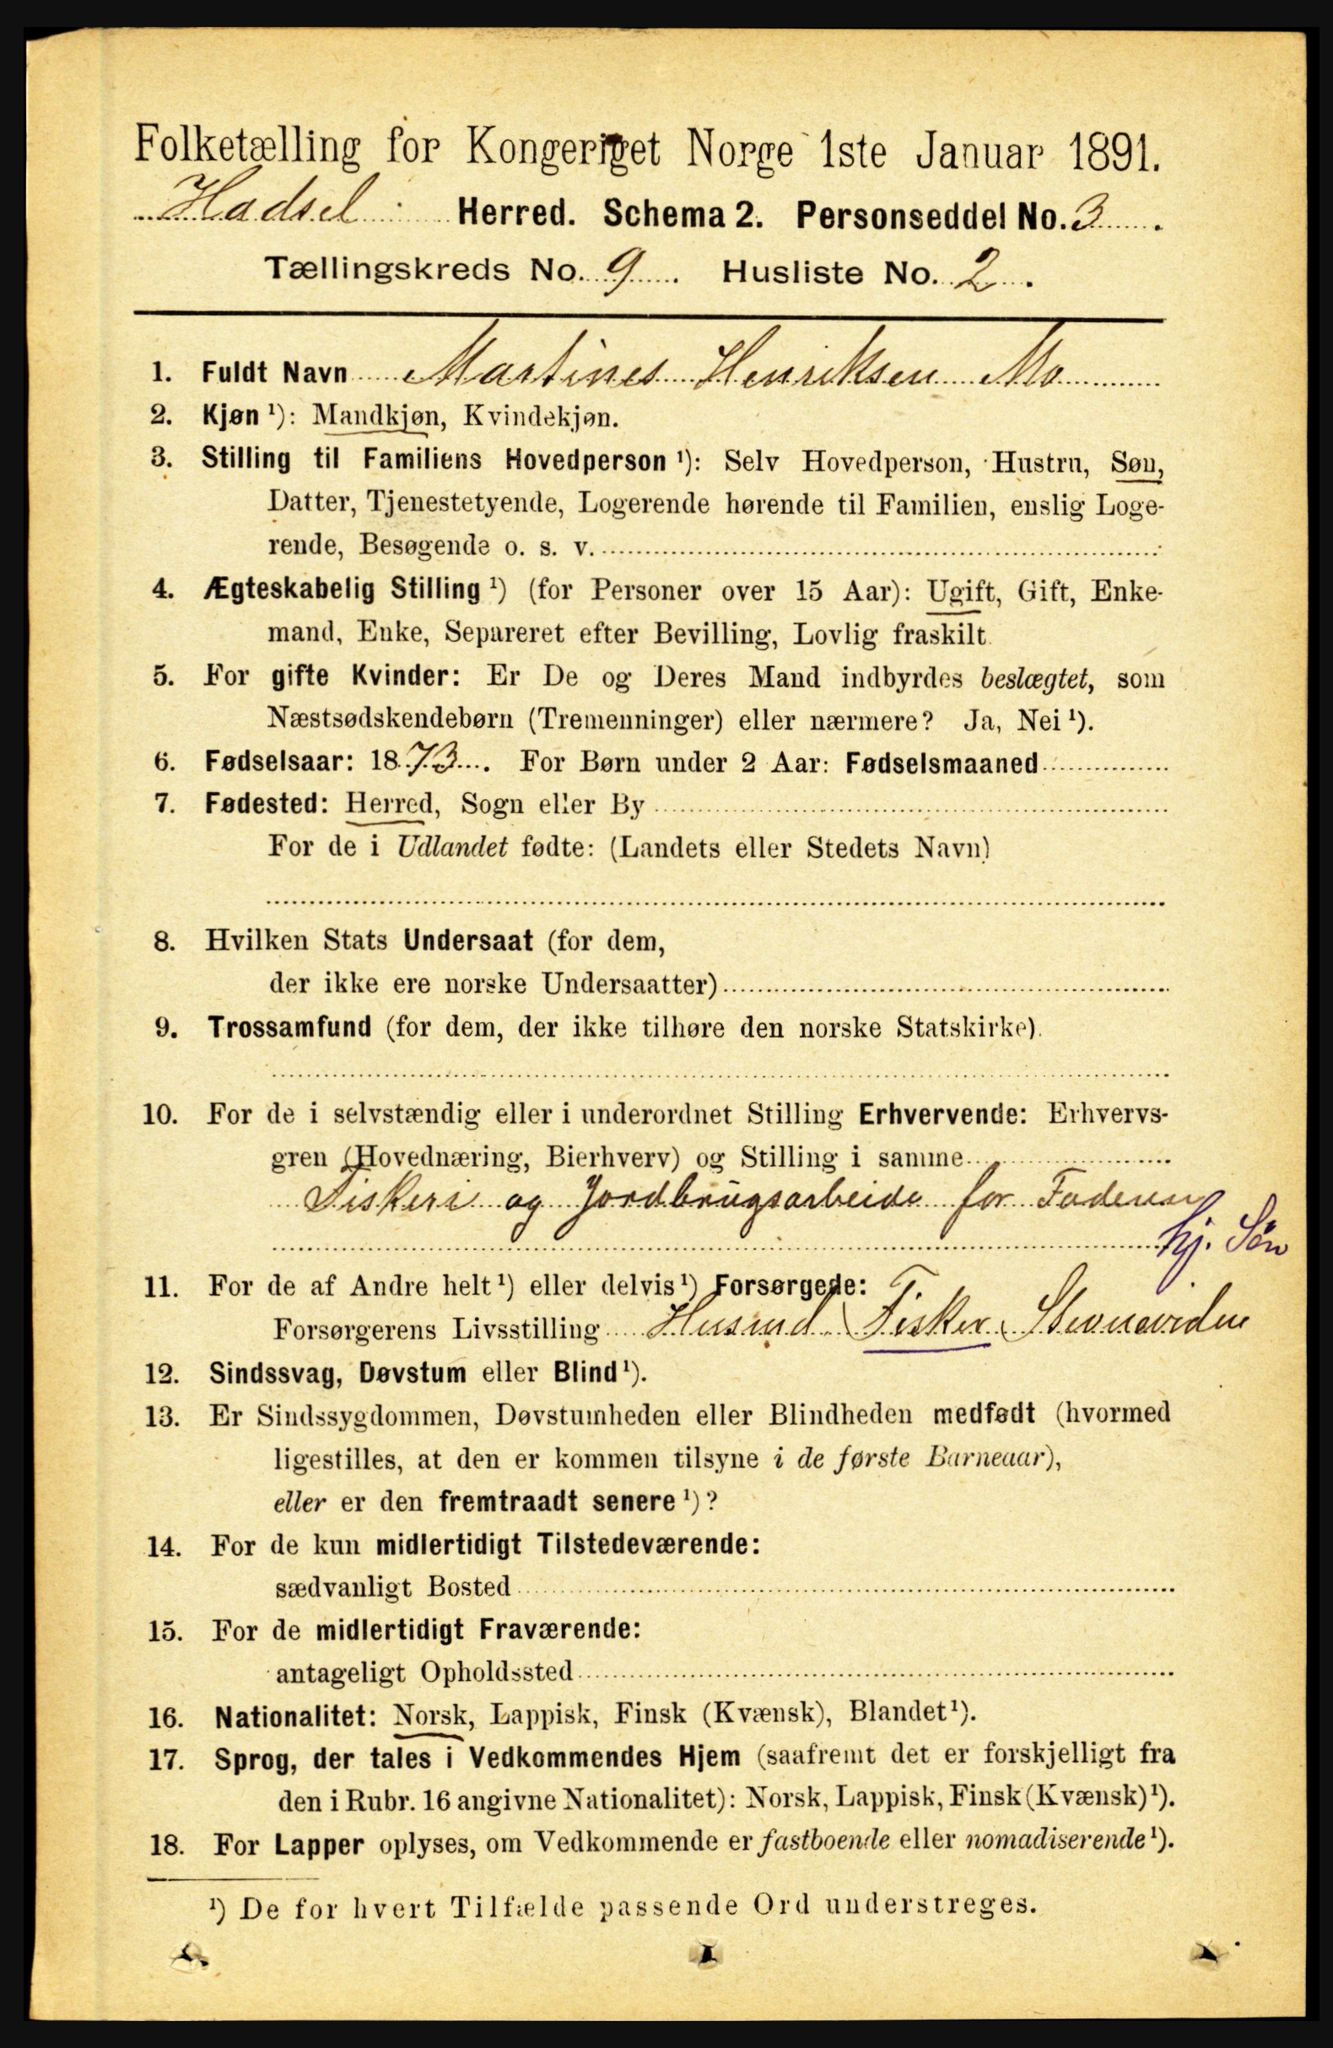 Folketælling for Kongeriget Norge 1ste Januar 1891.
Hadsel Herred. Schema 2. Personseddel No. 3.
Tællingskreds No. 9. Husliste No. 2.
1. Fuldt Navn Martines Henriksen Mo
2. Kjøn ¹): Mandkjøn, Kvindekjøn.
3. Stilling til Familiens Hovedperson ¹): Selv Hovedperson, Hustru, Søn,
Datter, Tjenestetyende, Logerende hørende til Familien, enslig Loge-
rende, Besøgende o. s. v.
4. Ægteskabelig Stilling ¹) (for Personer over 15 Aar): Ugift, Gift, Enke-
mand, Enke, Separeret efter Bevilling, Lovlig fraskilt
5. For gifte Kvinder: Er De og Deres Mand indbyrdes beslægtet, som
Næstsødskendebørn (Tremenninger) eller nærmere? Ja, Nei ¹).
6. Fødselsaar: 1873. For Børn under 2 Aar: Fødselsmaaned
7. Fødested: Herred, Sogn eller By
For de i Udlandet fødte: (Landets eller Stedets Navn)
8. Hvilken Stats Undersaat (for dem,
der ikke ere norske Undersaatter)
9. Trossamfund (for dem, der ikke tilhøre den norske Statskirke).
10. For de i selvstændig eller i underordnet Stilling Erhvervende: Erhvervs-
gren (Hovednæring, Bierhverv) og Stilling i samme
Fiskeri og Jordbrugsarbeide for Faderen
hj. Søn
11. For de af Andre helt ¹) eller delvis ¹) Forsørgede:
Forsørgerens Livsstilling Husmd Fisker
12. Sindssvag, Døvstum eller Blind ¹).
13. Er Sindssygdommen, Døvstumheden eller Blindheden medfødt (hvormed
ligestilles, at den er kommen tilsyne i de første Barneaar),
eller er den fremtraadt senere ¹)?
14. For de kun midlertidigt Tilstedeværende:
sædvanligt Bosted
15. For de midlertidigt Fraværende:
antageligt Opholdssted
16. Nationalitet: Norsk, Lappisk, Finsk (Kvænsk), Blandet ¹).
17. Sprog, der tales i Vedkommendes Hjem (saafremt det er forskjelligt fra
den i Rubr. 16 angivne Nationalitet): Norsk, Lappisk, Finsk (Kvænsk) ¹).
18. For Lapper oplyses, om Vedkommende er fastboende eller nomadiserende ¹).
¹) De for hvert Tilfælde passende Ord understreges.